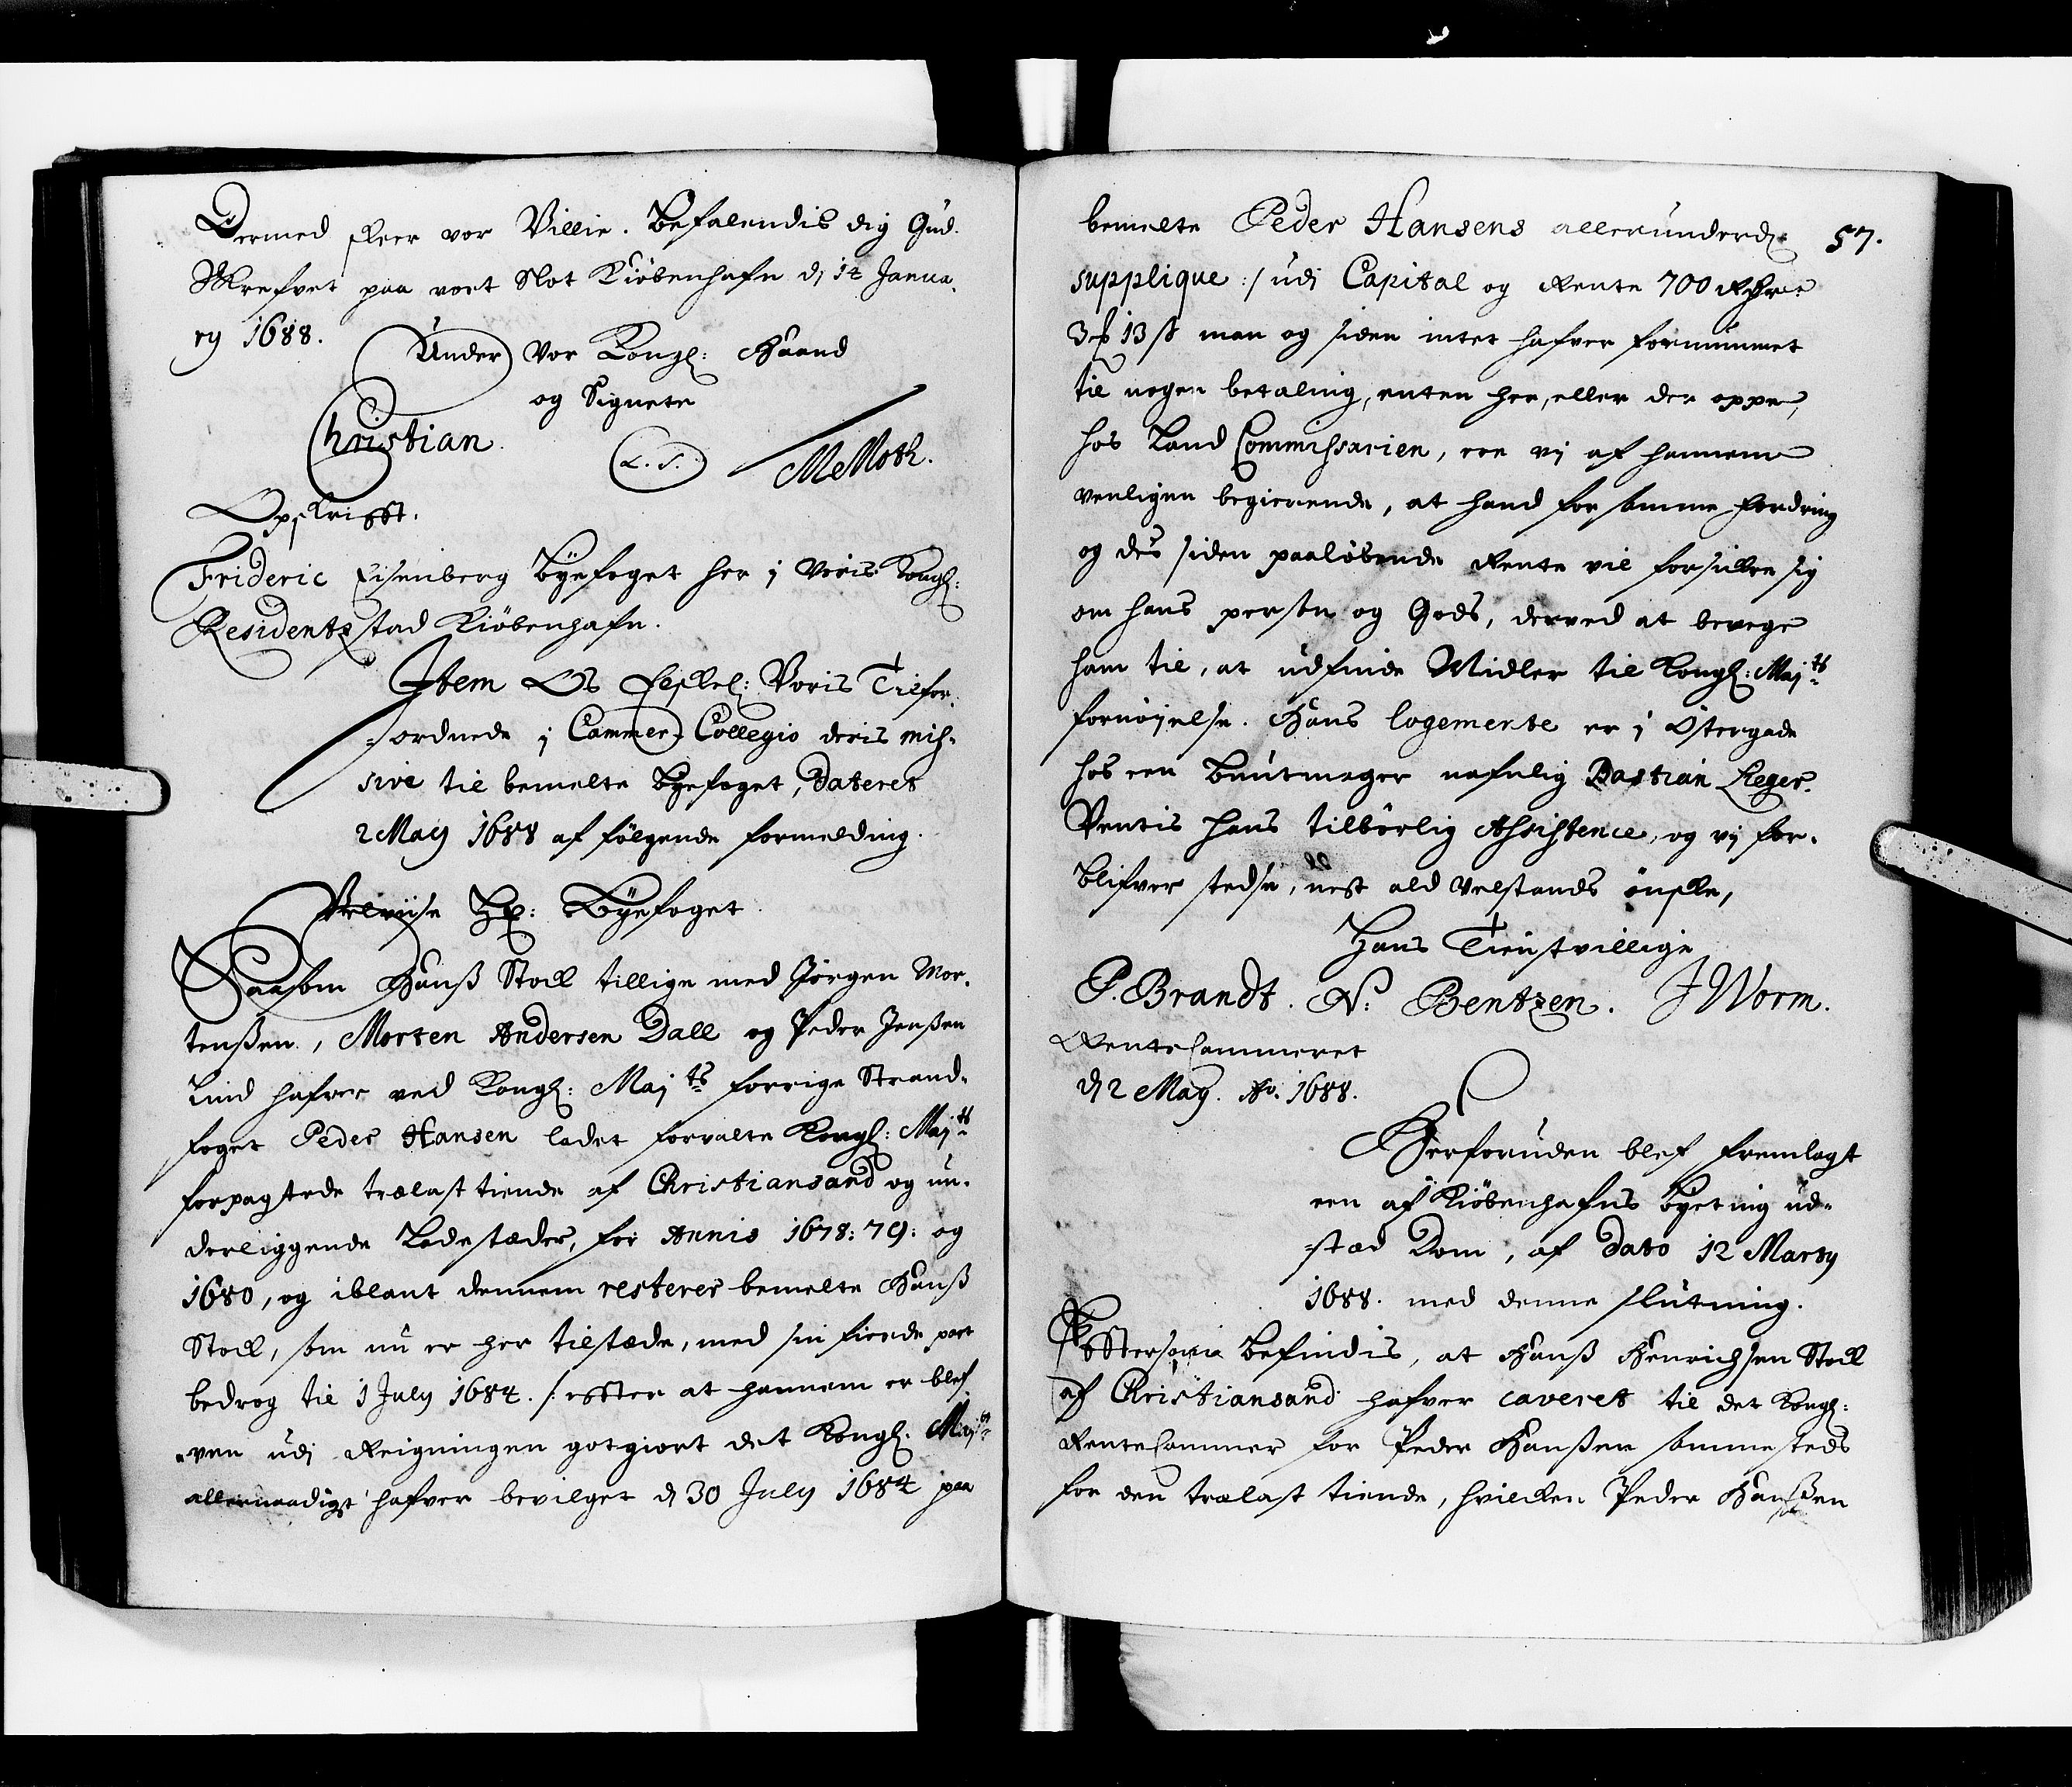 Dermed skeer vor Villie. Befalendis dig Gud.
Skrefvet paa vort Slot Kiöbenhafn dj 14 Janua.
ry 1688.
Under Vor Kongl: Haand
og Signete
Christian.
L. S.
MeMoth.
Opskrifft.
Frideric Eisenberg Byefoget her j Voris Kongl:
Residentzstad Kiöbenhafn.
Item Os Elskel: Voris Tilfor.
=ordnede j Cammer-Collegio deris mis=
sive til bemelte Byefoget, Dateret
2 May 1688 af fölgende formelding.
Velviise Hr: Byefoget.
Saasom Hanß Stoll tillige med Jörgen Mor.
tenßen, Morten Andersen Dall og Peder Jenßen
Lind hafver ved Kongl: Majts forrige Strand=
foget Peder Hansen ladet forvalte Kongl: Majts
forpagtede trælast tiende af Christiansand og un.
derliggende Ladestæder, for Annis 1678: 79: og
1680, og iblant dennem resterer bemelte Hanß
Stoll, som nu er her tilstæde, med sin fierde part
bedrog til 1 July 1684. /: effter at hannem er blef
=ven udj Reigningen gotgiort det Kongl. Majts
allernaadigst hafver bevilget dj 30 July 1684 paa
bemelte Peder Hansens allerunderd: 57.
supplique :/ udj Capital og Rente 700 Rdr
3 13 ß man og siden intet hafver fornummet
til nogen betaling, enten her, eller der oppe,
hos Land Commissarien, ere vj af hannem
venligen begierende, at hand for samme fordring
og des siden paalöbende Rente vil forsikre sig
om hans person og Gods, derved at bevege
ham til, at udfinde Midler til Kongl: Majts
fornöjelse. Hans logemente er j Östergade
hos een Buntmager nafnlig Bastian Leger.
Ventis hans tilbörlig Assistence, og vj for.
blifver stedse, nest ald Velstands önske,
Hans Tienstvillige
P. Brandt. N: Bentzen. J Worm.
RenteCammeret
dj 2 May. Ao. 1688.
Herforuden blef fremlagt
een af Kiöbenhafns Byeting ud=
=stæd Dom, af Dato 12 Marty
1688. med denne slutning.
Efftersom Befindis, at Hanß Henrichsen Stoll
af Christiansand hafver caveret til det Kongl:
RenteCammer for Peder Hanßen sammesteds
for den trælast tiende, hvilcken Peder Hanßen